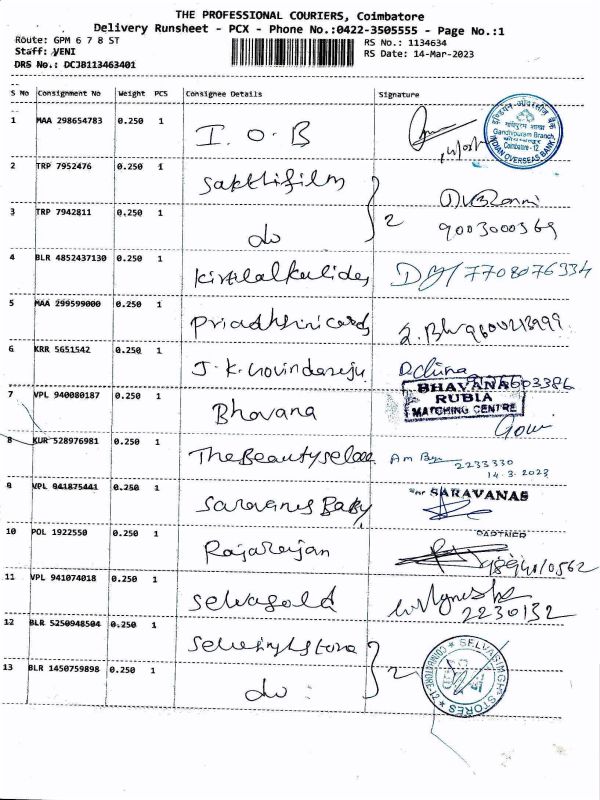 THE PROFESSIONAL COURIERS, Coimbatore
Delivery Runsheet - PCX - Phone No.:0422-3505555 - Page No.:1
Route: GPM 6 7 8 ST
RS No.: 1134634
Staff: VENI
RS Date: 14-Mar-2023
DRS No.: DCJB113463401
S No Consignment No Weight PCS Consignee Details Signature
1 MAA 298654783 0.250 1 I.O.B
Gandhipuram Branch
Coimbatore - 12
INDIAN OVERSEAS BANK
2 TRP 7952476 0.250 1 Sakthifilm
3 TRP 7942811 0.250 1 do 2 9003000369
4 BLR 4852437130 0.250 1 Kirtilalkalidas 7708076334
5 MAA 299599000 0.250 1 Priadhsinicards
6 KRR 5651542 0.250 1 J.K. Govindaraju
7 VPL 940080187 0.250 1 Bhavana
BHAVANA
RUBIA
MATCHING CENTRE
Gowri
8 KUR 528976981 0.250 1 The Beautyselae 2233330
14.3.2023
9 VPL 941875441 0.250 1 Saravanas Baby
For SARAVANAS
PARTNER
10 POL 1922550 0.250 1 Rajarajan
11 VPL 941074018 0.250 1 Selvagold 2230132
12 BLR 5250948504 0.250 1 Selvasinghstore
13 BLR 1450759898 0.250 1 do 2
★ SELVASINGH STORES ★ COIMBATORE-12